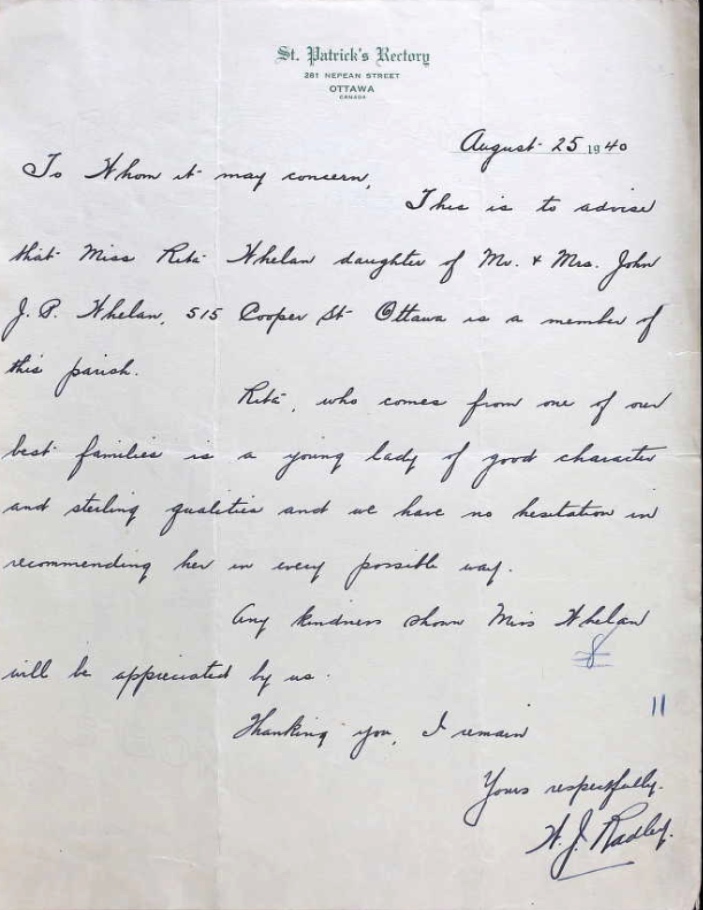 St. Patrick's Rectory
281 NEPEAN STREET
OTTAWA
CANADA
August 25 1940
To Whom it may concern,
This is to advise
that Miss Rita Whelan daughter of Mr. & Mrs. John
J. P. Whelan, 515 Cooper St Ottawa is a member of
this parish.
Rita, who comes from one of our
best families is a young lady of good character
and sterling qualities and we have no hesitation in
recommending her in every possible way.
Any kindness shown Miss Whelan
will be appreciated by us.
11
Thanking you, I remain
Yours respectfully.
W. J. Radley.